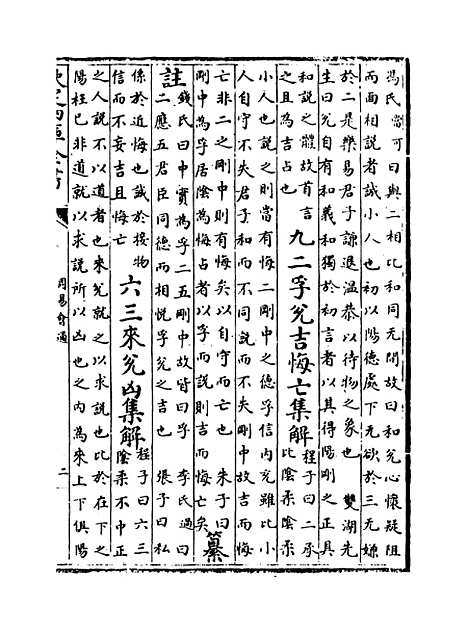 馮氏當可曰與二相比和同无間故曰和兌心懷疑阻
而面相説者誠小人也初以陽德處下无欲於三无嫌
於二是樂易君子謙退温恭以待物之象也　雙湖先
生曰兌自有和義和獨於初言者以其得陽剛之正具
和説之體故首言
之且為吉占也
九二孚兌吉悔亡集解
程子曰二承
比陰柔陰柔
小人也説之則當有悔二剛中之德孚信内充雖比小
人自守不失君子和而不同説而不失剛中故吉而悔
亡非二之剛中則有悔矣以自守而亡也　朱子曰
剛中為孚居陰為悔占者以孚而説則吉而悔亡矣
纂
註
錢氏曰中實為孚二五剛中故皆曰孚　李氏過曰
二應五君臣同德而相悦孚兌之吉也　張子曰私
係於近悔也誠於接物
信而不妄吉且悔亡
六三來兌凶集解
程子曰六三
陰柔不中正
之人説不以道者也來兌就之以求説也比於在下之
陽枉已非道就以求説所以凶也之内為來上下俱陽
欽定四庫全書
周易會通
二